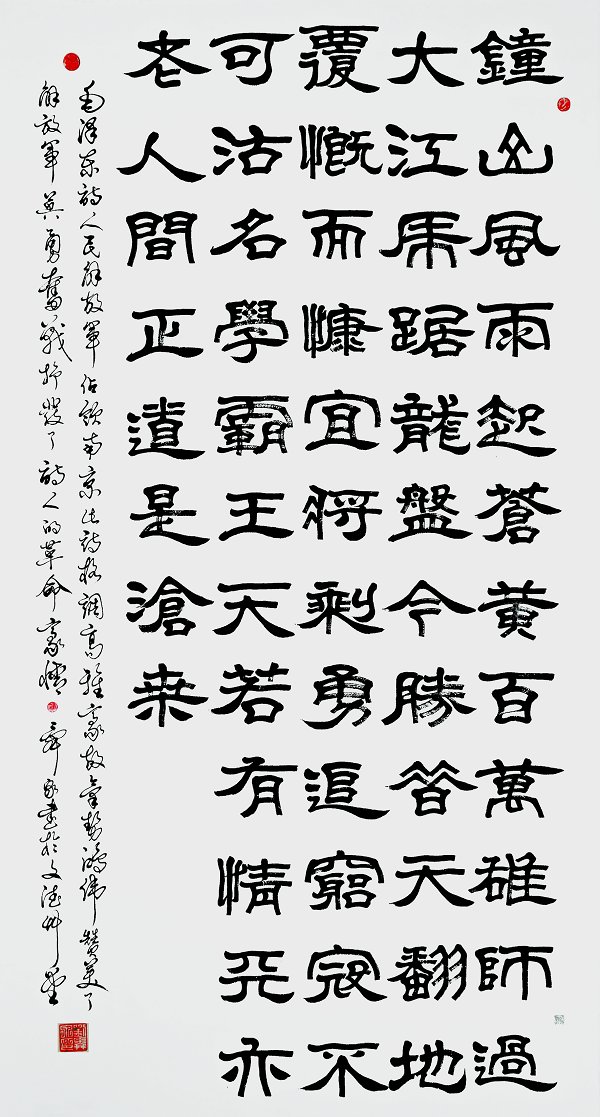 鐘山風雨起蒼黃百萬雄師過
大江虎踞龍盤今勝昔天翻地
覆慨而慷宜將剩勇追窮寇不
可沽名學霸王天若有情天亦
老人間正道是滄桒
毛泽东詩人民解放軍佔領南京此詩格調高雅豪放氣勢鴻偉赞美了
解放軍英勇奮戰抒發了詩人的革命豪情 書於文德草堂